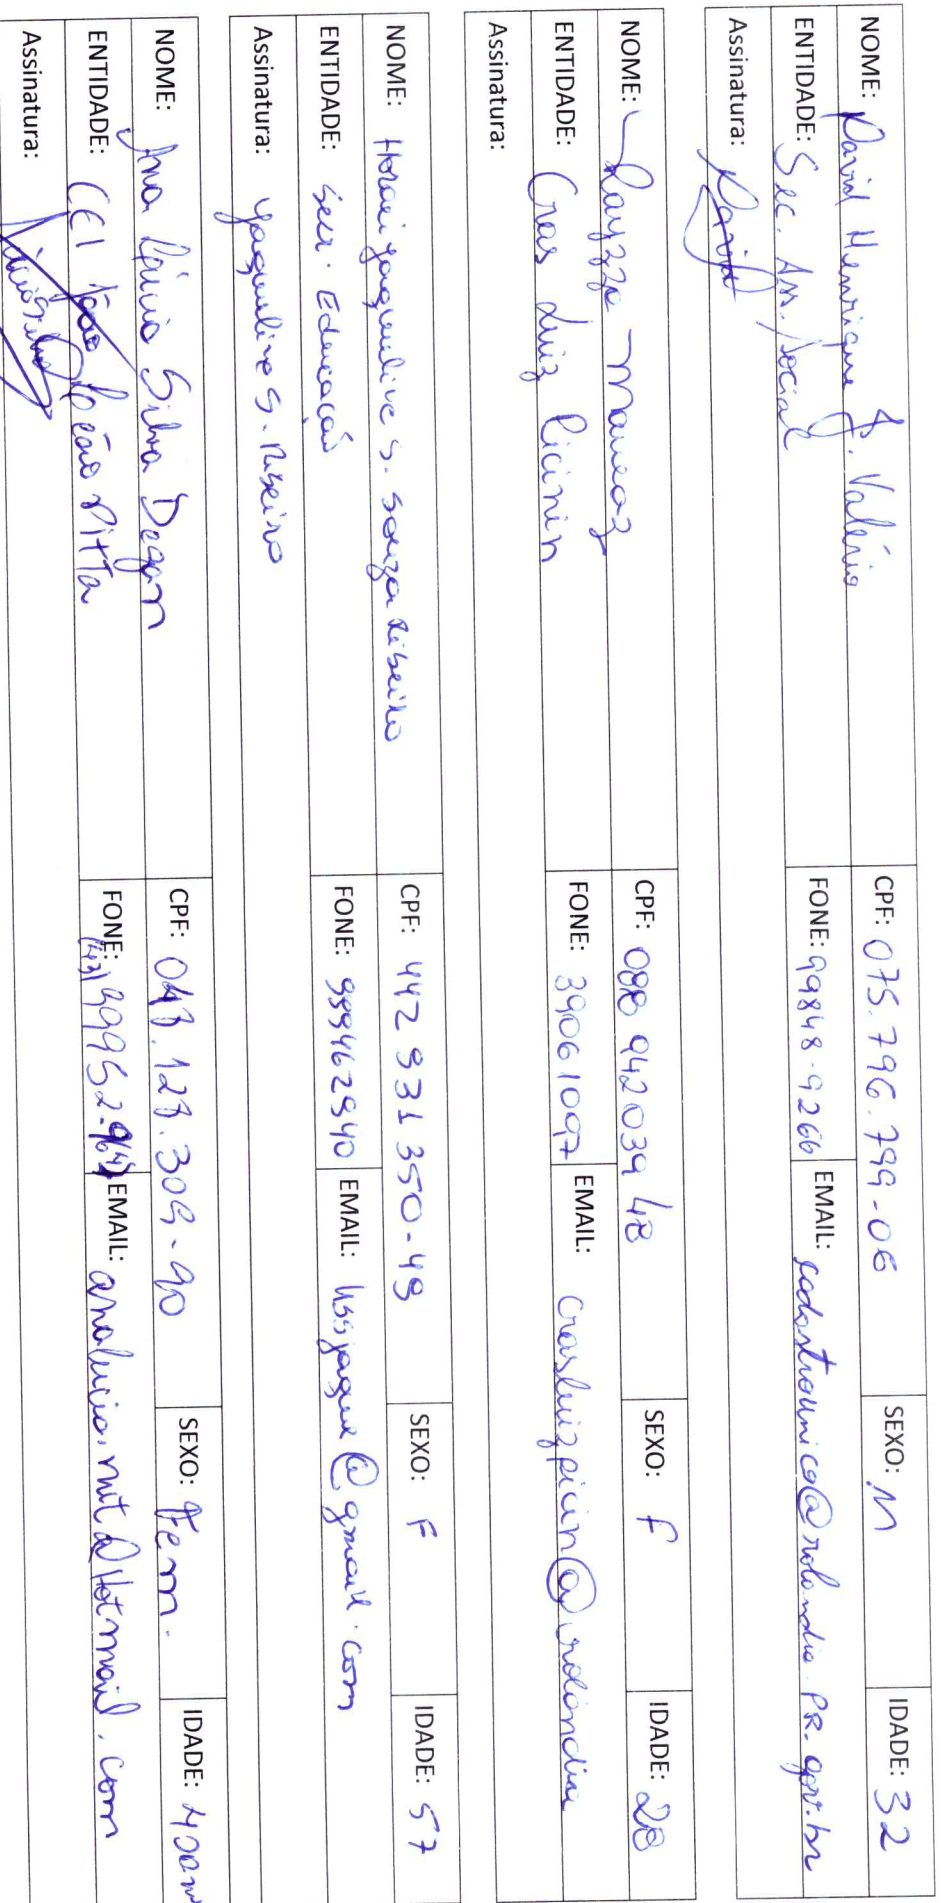 NOME: David Henrique F. Valério CPF: 075.796.799-06 SEXO: M IDADE: 32
ENTIDADE: Sec. Ass. Social FONE: 99848-9266 EMAIL: cadastrounico@rolandia.pr.gov.br
Assinatura: David
NOME: Rayzza CPF: 088 942 039 48 SEXO: F IDADE: 28
ENTIDADE: Cras Luiz Picinin FONE: 39061097 EMAIL: crasluizpicin@rolandia
Assinatura:
NOME: jaqueline S. Souza Ribeiro CPF: 442 931 350-49 SEXO: F IDADE: 57
ENTIDADE: Secr. Educação FONE: 999462940 EMAIL: hssjaque@gmail.com
Assinatura: Jaqueline S. Ribeiro
NOME: Ana Lúcia Silva Degan CPF: SEXO: Fem. IDADE:
ENTIDADE: CEI João Leão Pitta FONE: (43) 99952- EMAIL: analucia.mit@Hotmail.com
Assinatura: